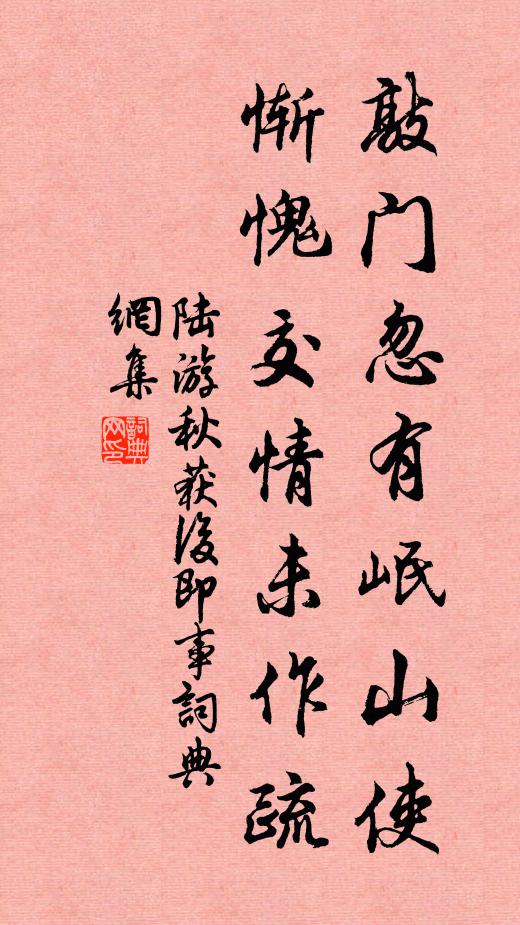 敲门忽有岷山使
惭愧交情未作疏
陆游秋获後即事詞典
網集
詞典
网印